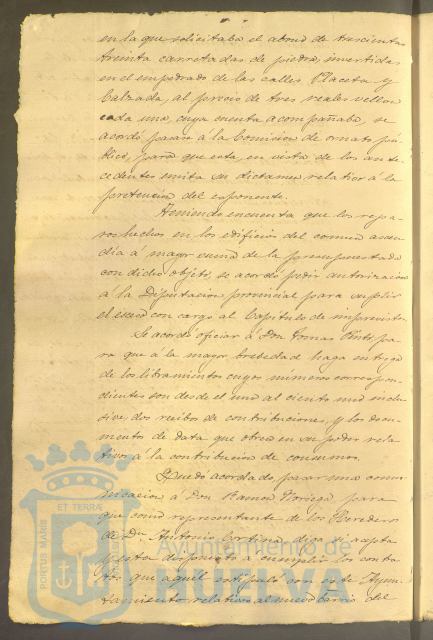 en la que solicitaba el abono de trescientas
treinta carretadas de piedra, invertidas
en el empedrado de las calles, Placeta y
Calzada, al precio de tres reales vellon
cada una, cuya cuenta acompañaba, se
acordó pasar á la Comision de ornato pú-
blico, para que esta, en vista de los ante-
cedentes emita su dictamen relativo á la
pretencion del esponente.
Teniendo encuenta que los repa-
ros hechos en los edificios del comun ascen-
dia á mayor suma de la presupuestada
con dicho objeto, se acordó pedir autorizacion
á la Diputacion provincial para suplir
el esceso con cargo al Capitulo de imprevistos.
Se acordó oficiar á Don Tomas pa-
ra que á la mayor brebedad haga entrega
de los libramientos cuyos números correspon-
dientes son desde el uno al ciento uno inclu-
sive, dos recibos de contribuciones, y los docu-
mentos de data que obran en su poder rela-
tivos á la contribucion de consumos.
Quedó acordado pasar una comu-
nicacion á Don Ramon Noriega para
que como representante de los Herederos
de Dn. Antonio Cortina, diga si acepta
y esta dispuesto a cumplir los contra-
tos que aquel estipuló con este Ayun-
tamiento relativos al nuevo barrio del
PORTUS MARIS
ET TERRAE
Ayuntamiento de
HUELVA